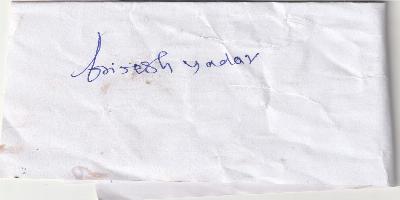 brijesh yadav